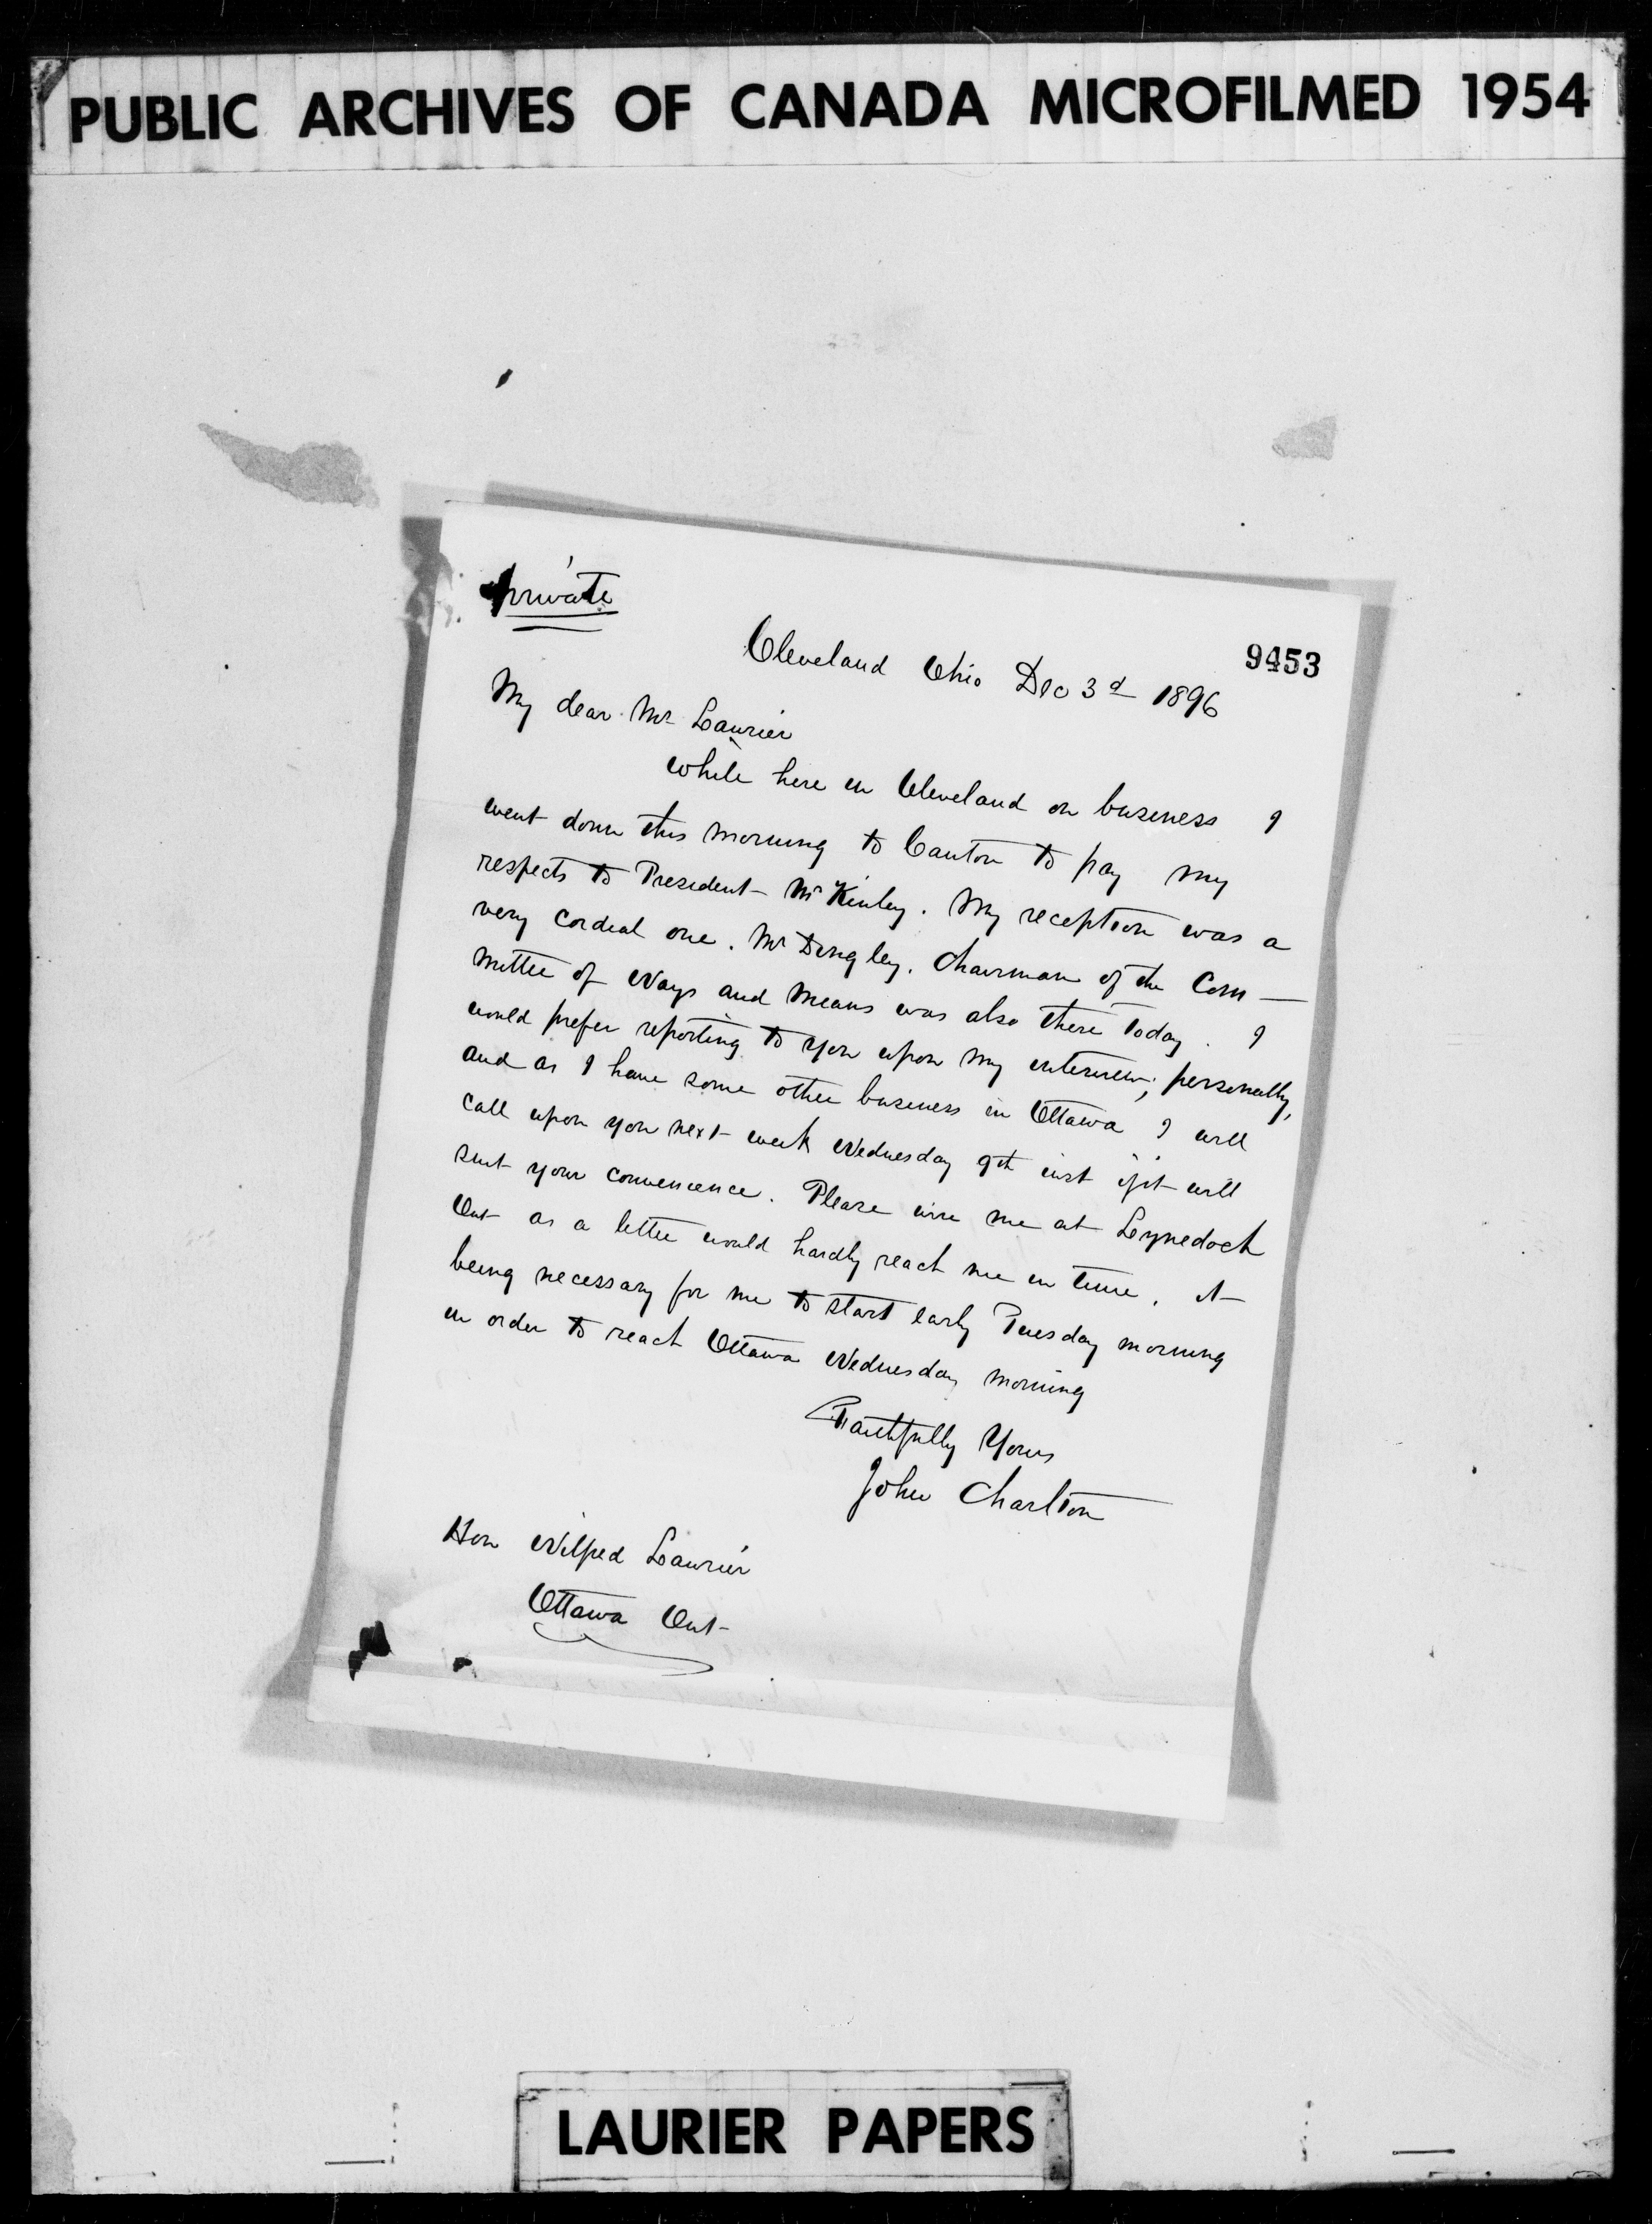 PUBLIC ARCHIVES OF CANADA MICROFILMED 1954
Private
9453
Cleveland Ohio Dec 3d 1896
My dear Mr Laurier
While here in Cleveland on business I
went down this morning to Canton to pay my
respects to President McKinley. My reception was a
very cordial one. Mr Dingley, Chairman of the Com—
mittee of Ways and Means was also there today. I
would prefer reporting to you upon my interview, personally,
and as I have some other business in Ottawa I will
call upon you next week Wednesday 9th inst if it will
suit your convenience. Please wire me at Lynedoch
Ont as a letter would hardly reach me in time, it
being necessary for me to start early Tuesday morning
in order to reach Ottawa Wednesday morning
Faithfully Yours
John Charlton
Hon Wilfred Laurier
Ottawa Ont
LAURIER PAPERS